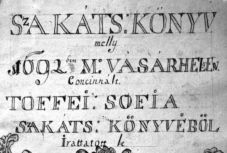 SZAKÁTS: KÖNYV
melly
1692 ben M: VÁSÁRHELEN
Concinnált.
TOFFEÍ: SOFÍA
SZAKÁTS: KÖNYVÉBŐL
Irattatott le